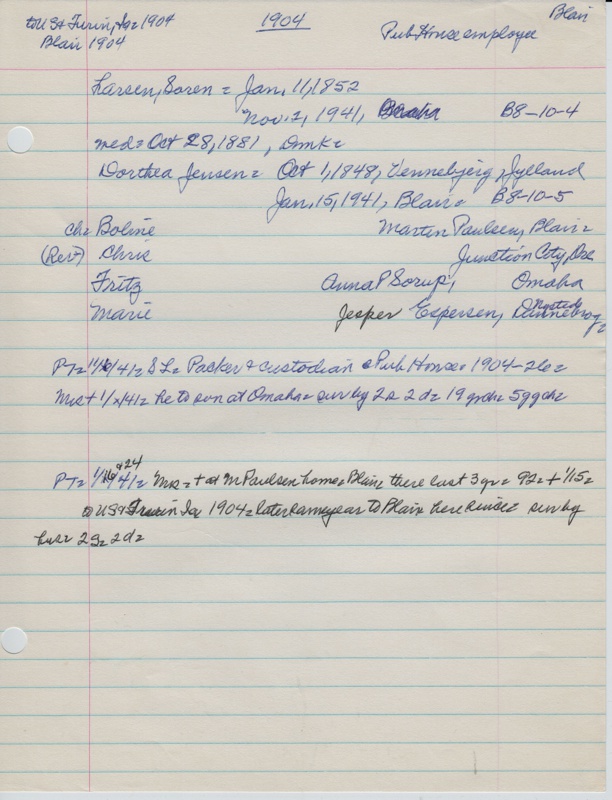 to US & Turin, Ia = 1904
1904
Blair
Blair 1904
Pub House employee
Larsen, Soren = Jan. 11, 1852
Nov. 2, 1941, Omaha B8-10-4
med = Oct 28, 1881, Dmk =
Dorthea Jensen = Oct 1, 1848, Vennebjerg, Jylland
Jan. 15, 1941, Blair = B8-10-5
ch = Boline Marten Paulsen, Blair =
(Rev) Chris Junction City, Ore
Fritz Anna P Sorup, Omaha
Marie Jesper Espersen, Dannebrog =
Nysted
PT = 11/ /41 = S L = Packer & custodian @ Pub House = 1904-26 =
Mrs + 1/x/41 = he to son at Omaha = sur by 2s 2d = 19 grch = 5ggch =
PT = 1/16 & 24/41 = Mrs = + at M Paulsen home = Blair = there last 3 yr = 92 = + 1/15 =
to US & Turin Ia 1904 = later same year to Blair = here since = sur by
hus = 2s = 2d =